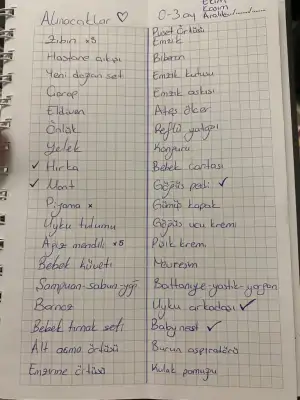 Alınacaklar ♡
Zıbın x5
Hastane çıkışı
Yeni doğan set
Çorap
Eldiven
Önlük
Yelek
✓ Hırka
✓ Mont
Pijama x
Uyku tulumu
Ağız mendili x5
Bebek küveti
Şampuan-sabun-yağ
Bornoz
Bebek tırnak seti
Alt açma örtüsü
Emzirme örtüsü
0-3 ay
Ekim
Kasım
Aralık
Puset örtüsü
Emzik
Biberon
Emzik kutusu
Emzik askısı
Ateş ölçer
Reflü yatağı
Kanguru
Bebek çantası
Göğüs pedi ✓
Gümüş kapak
Göğüs ucu kremi
Pişik kremi
Battaniye-yastık-yorgan
Uyku arkadaşı ✓
Babynest ✓
Burun aspiratörü
Kulak pamuğu